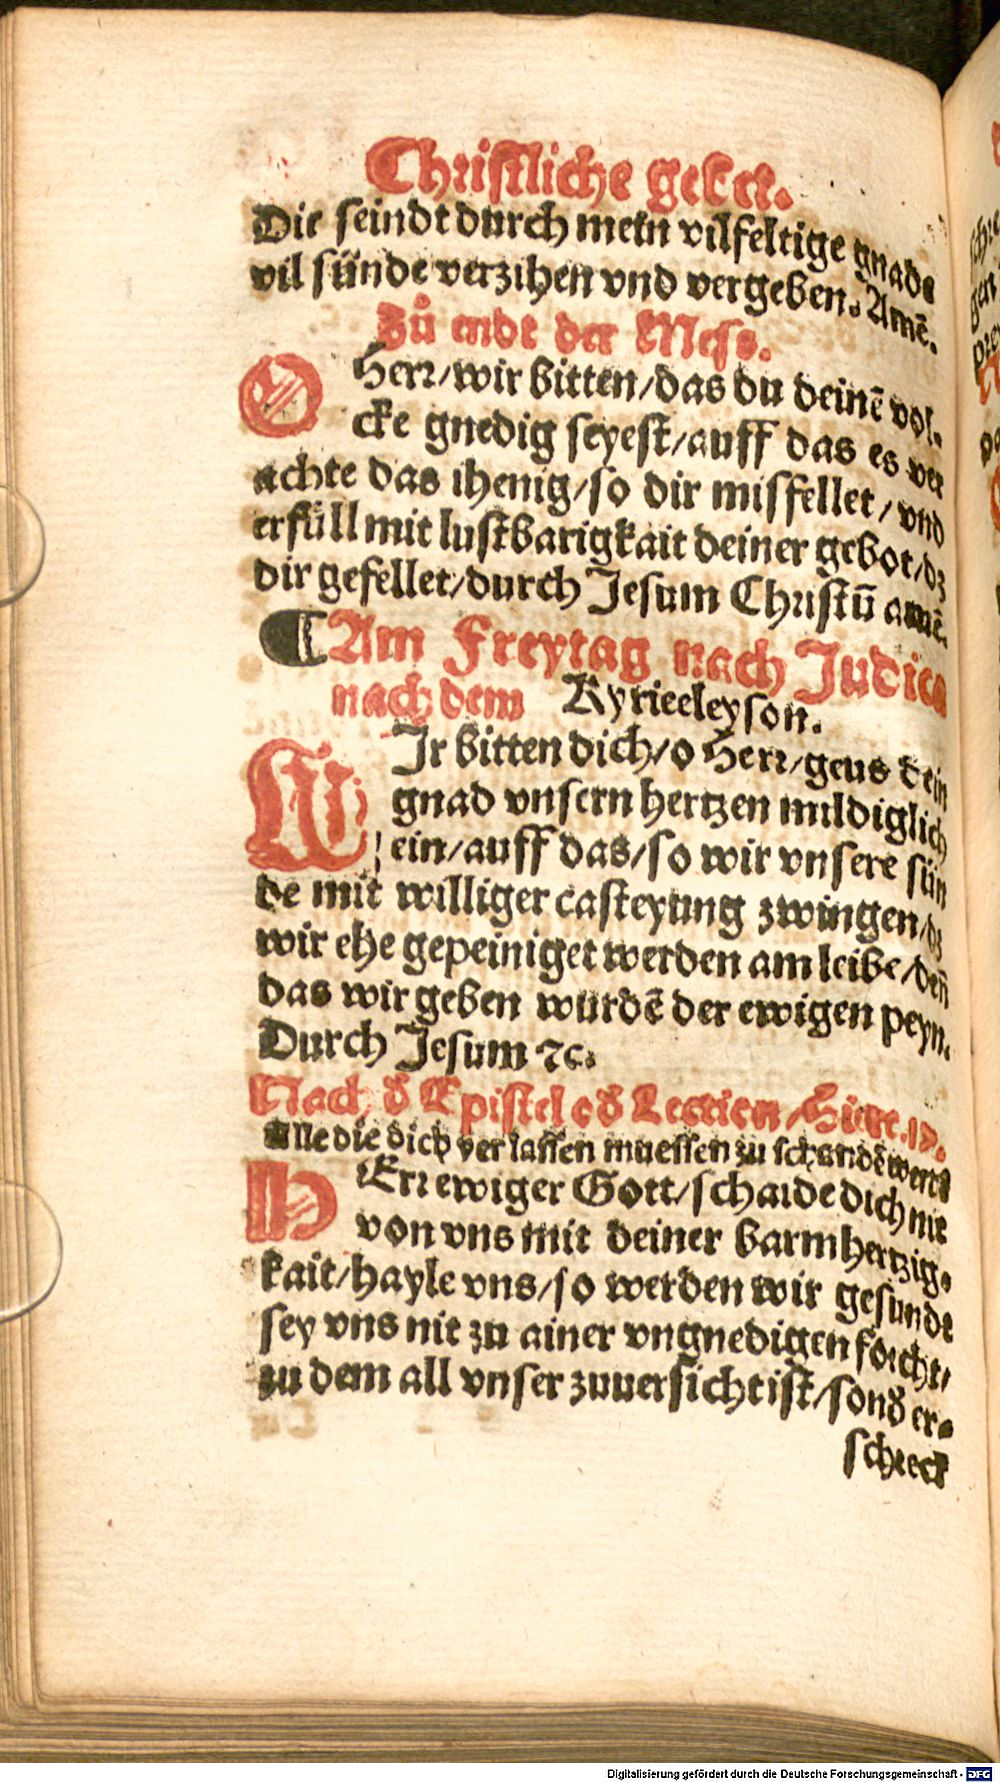 Christliche gebet.
Dir seindt durch mein vilfeltige gnade
vil sünde verzihen vnd vergeben. Amē.
Zů endt der Mess.
O Herr/wir bitten/das du deinē vol-
cke gnedig seyest/auff das es ver
achte das ihenig/so dir misfellet/vnd
erfüll mit lustbarigkait deiner gebot/dz
dir gefellet/durch Jesum Christū amē.
¶Am Freytag nach Judica
nach dem Kyrieeleyson.
WJr bitten dich/o Herr/geus dein
gnad vnsern hertzen mildiglich
ein/auff das/so wir vnsere sün
de mit williger casteyung zwingen/dz
wir ehe gepeiniget werden am leibe/deñ
das wir geben wurdē der ewigen peyn.
Durch Jesum ꝛc.
Nach đ Epistel ođ Lection/Hiere.17.
Alle die dich verlassen muessen zu schandē werdē
HErr ewiger Gott/schaide dich nit
von vns mit deiner barmhertzig-
kait/hayle vns/so werden wir gesundt
sey vns nit zu ainer vngnedigen forcht/
zu dem all vnser zuuersicht ist/sonđ er-
schreck
Digitalisierung gefördert durch die Deutsche Forschungsgemeinschaft - DFG